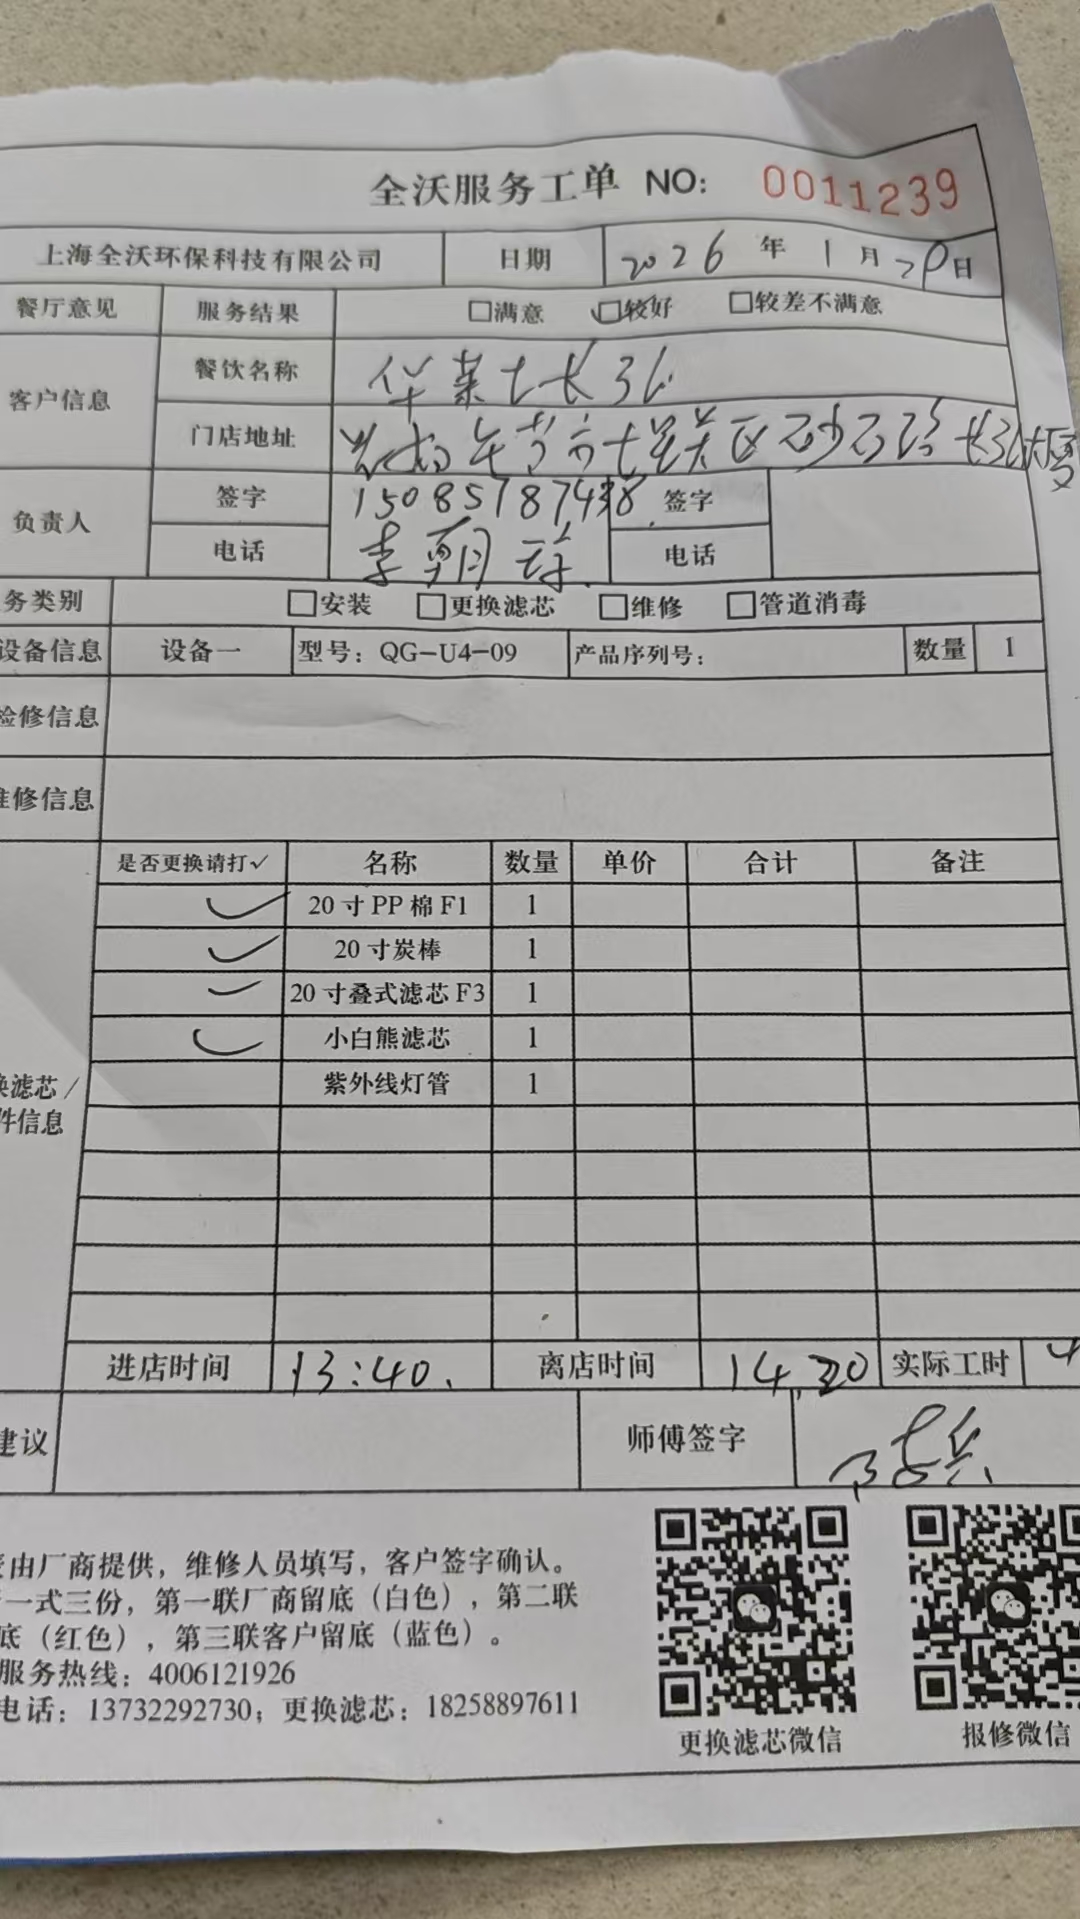 全沃服务工单 NO: 0011239
上海全沃环保科技有限公司 日期 2026年1月29日
餐厅意见 服务结果 □满意 □较好 □较差不满意
客户信息 餐饮名称 华莱士长江
门店地址 节市七星关区砂石路长江大厦
负责人 签字 签字
电话 李朝琼 电话
务类别 □安装 □更换滤芯 □维修 □管道消毒
设备信息 设备一 型号：QG-U4-09 产品序列号： 数量 1
检修信息
维修信息
是否更换请打✓ 名称 数量 单价 合计 备注
✓ 20寸PP棉F1 1
✓ 20寸炭棒 1
✓ 20寸叠式滤芯F3 1
✓ 小白熊滤芯 1
紫外线灯管 1
换滤芯/
件信息
进店时间 13:40. 离店时间 14.20 实际工时
建议 师傅签字
由厂商提供，维修人员填写，客户签字确认。
一式三份，第一联厂商留底（白色），第二联
底（红色），第三联客户留底（蓝色）。
服务热线：4006121926
电话：13732292730；更换滤芯：18258897611
更换滤芯微信 报修微信